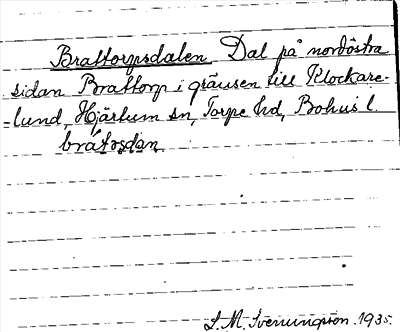 Brattorpsdalen Dal på nordöstra
sidan Brattorp i gränsen till Klockare-
-lund, Hjärtum sn, Torpe hd, Bohus l.
bråtårsdan
S. M. Svenungsson. 1935.